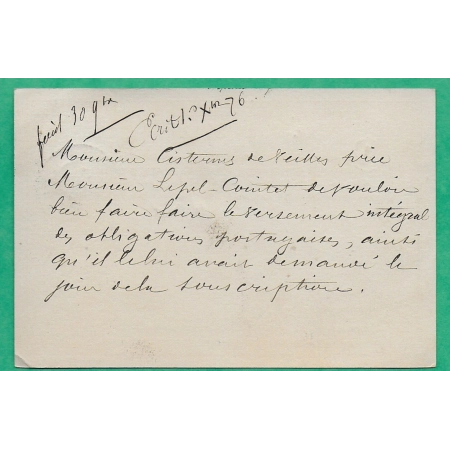 30 9bre
Écrit 1er Xbre 76
Monsieur Cisternes de Veilles prie
Monsieur Lepel-Cointet de vouloir
bien faire faire le versement intégral
des obligations portugaises, ainsi
qu'il le lui avait demandé le
jour de la souscription.